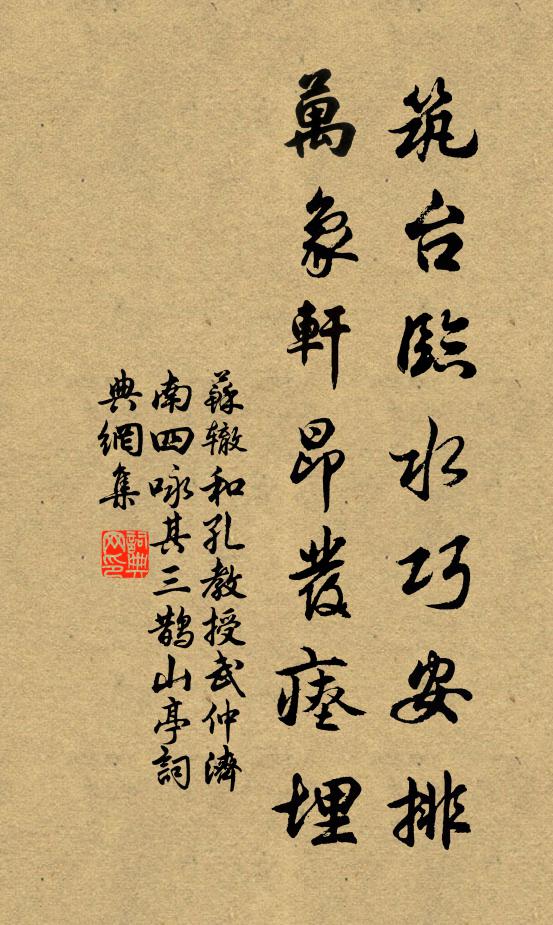 筑台臨水巧安排
萬象軒昂發瘞埋
蘇辙和孔教授武仲濟
南四咏其三鵲山亭詞
典網集
詞典
网印